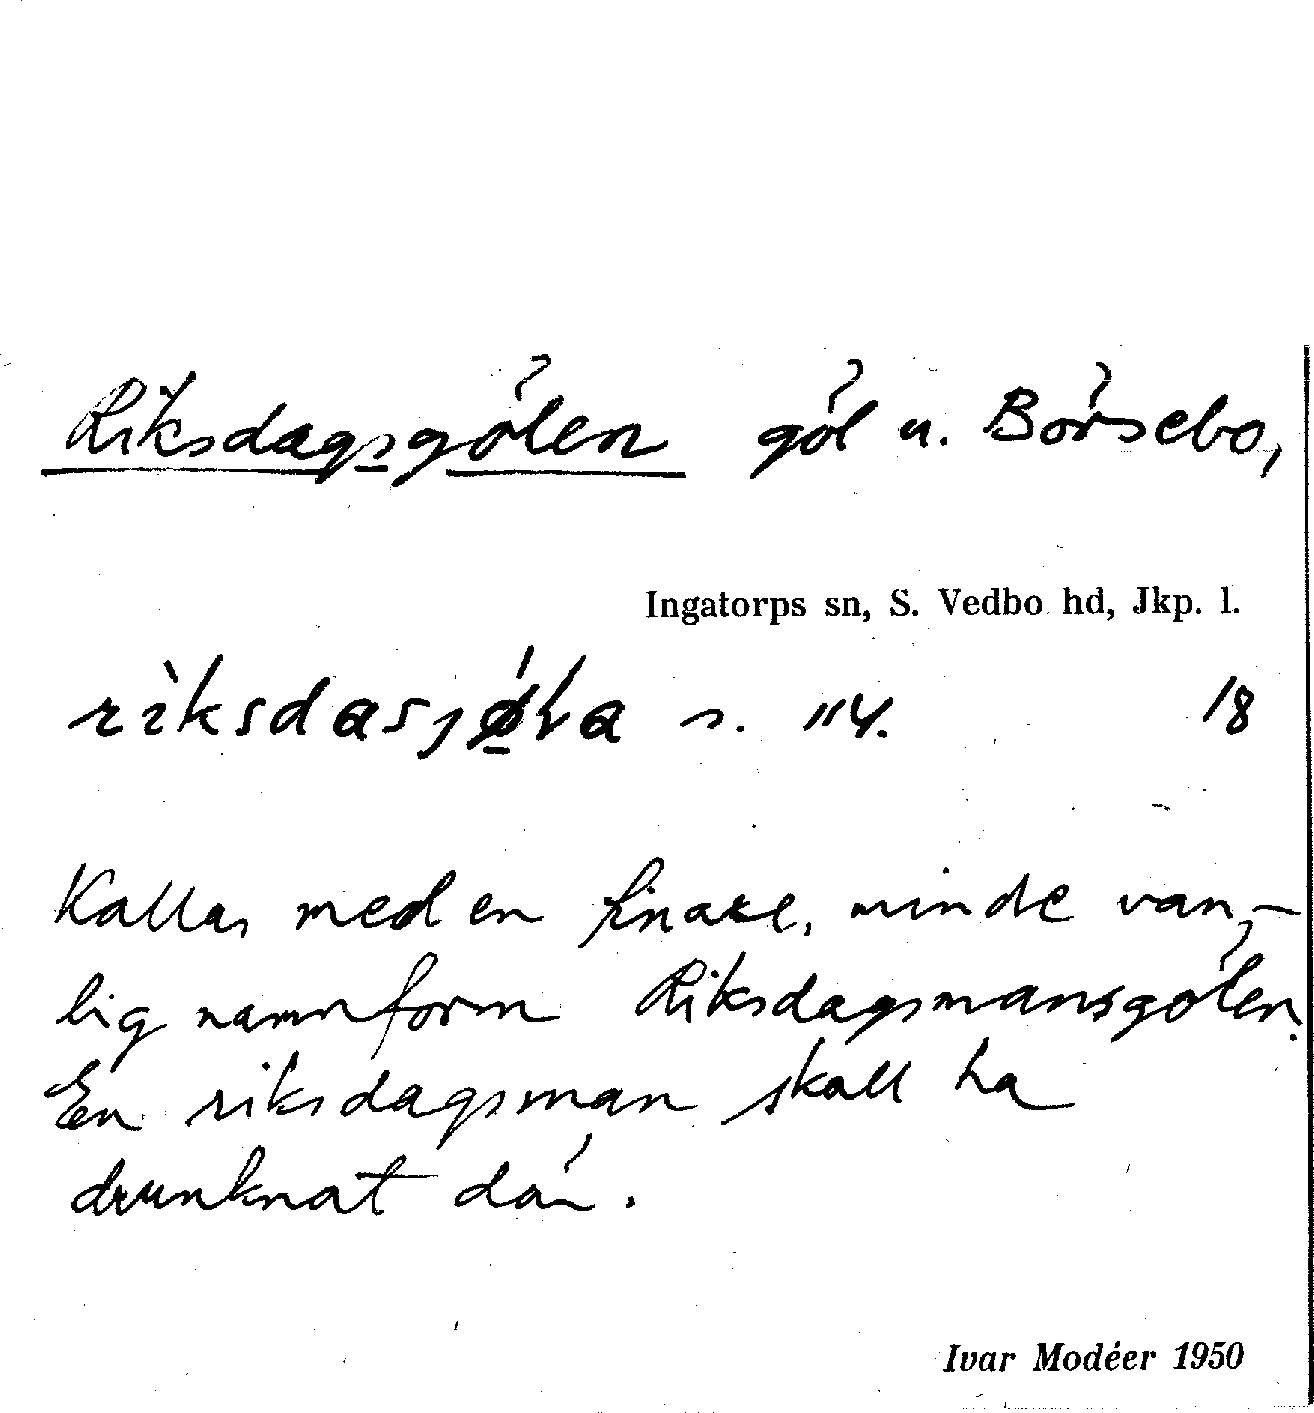 Riksdagsgölen göl u. Börsebo,
Ingatorps sn, S. Vedbo hd, Jkp. l.
18
Kallas med en finare, minde van-
lig namnform Riksdagsmansgölen.
En riksdagsman skall ha
drunknat där.
Ivar Modéer 1950